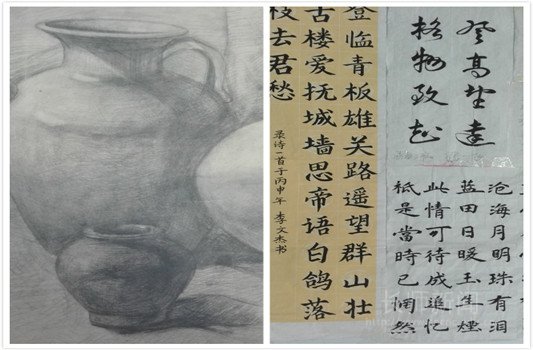 登临青板雄关路遥望群山壮
古楼爱抚城墙思帝语白鸽落
枝去君愁
录诗一首于丙申年 李文杰书
登高望遠
格物致知
沧海月明珠有泪
蓝田日暖玉生煙
此情可待成追忆
衹是當時已惘然